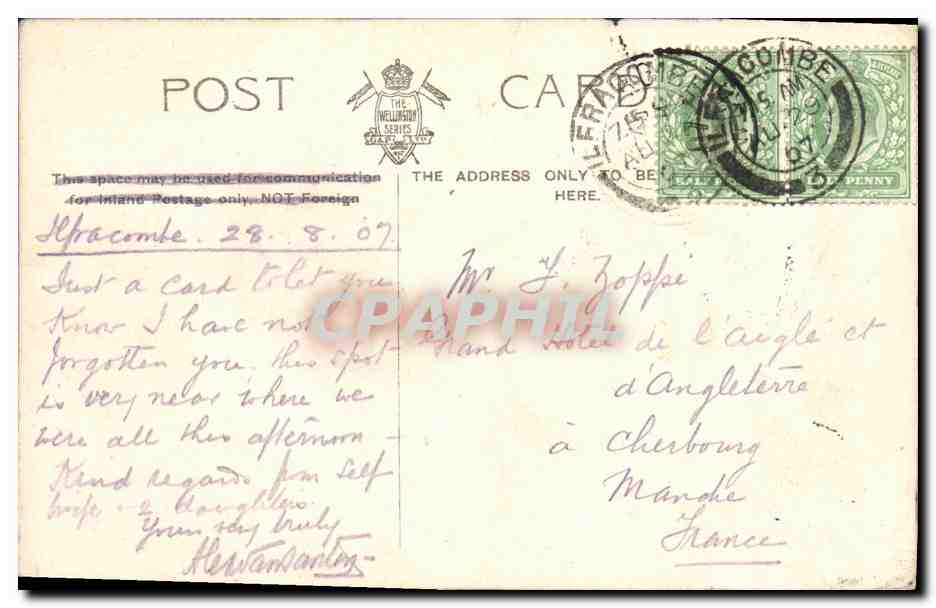 POST CARD
THE
WELLINGTON
SERIES
THE ADDRESS ONLY TO BE
HERE.
This space may be used for communication
for Inland Postage only, NOT Foreign
Ilfracombe. 28. 8. 07
Just a card to let you
Know I have not
forgotten you. this spot
is very near where we
were all this afternoon –
Kind regards from self
wife – 2 daughters
Yours very truly
Mr F. Zoppi
Grand Hotel de l'aigle et
d'Angleterre
à Cherbourg
Manche
France
ILFRACOMBE
AU
ILFRACOMBE
AU 28
07
PENNY
CPAPHIL